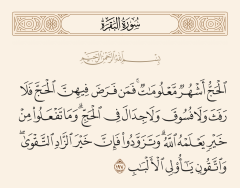 سُورَةُ البَقَرَةِ
بِسْمِ اللَّهِ الرَّحْمَٰنِ الرَّحِيمِ
الْحَجُّ أَشْهُرٌ مَّعْلُومَاتٌ ۚ فَمَن فَرَضَ فِيهِنَّ الْحَجَّ فَلَا
رَفَثَ وَلَا فُسُوقَ وَلَا جِدَالَ فِي الْحَجِّ ۗ وَمَا تَفْعَلُوا مِنْ
خَيْرٍ يَعْلَمْهُ اللَّهُ ۗ وَتَزَوَّدُوا فَإِنَّ خَيْرَ الزَّادِ التَّقْوَىٰ ۚ
وَاتَّقُونِ يَا أُولِي الْأَلْبَابِ ١٩٧